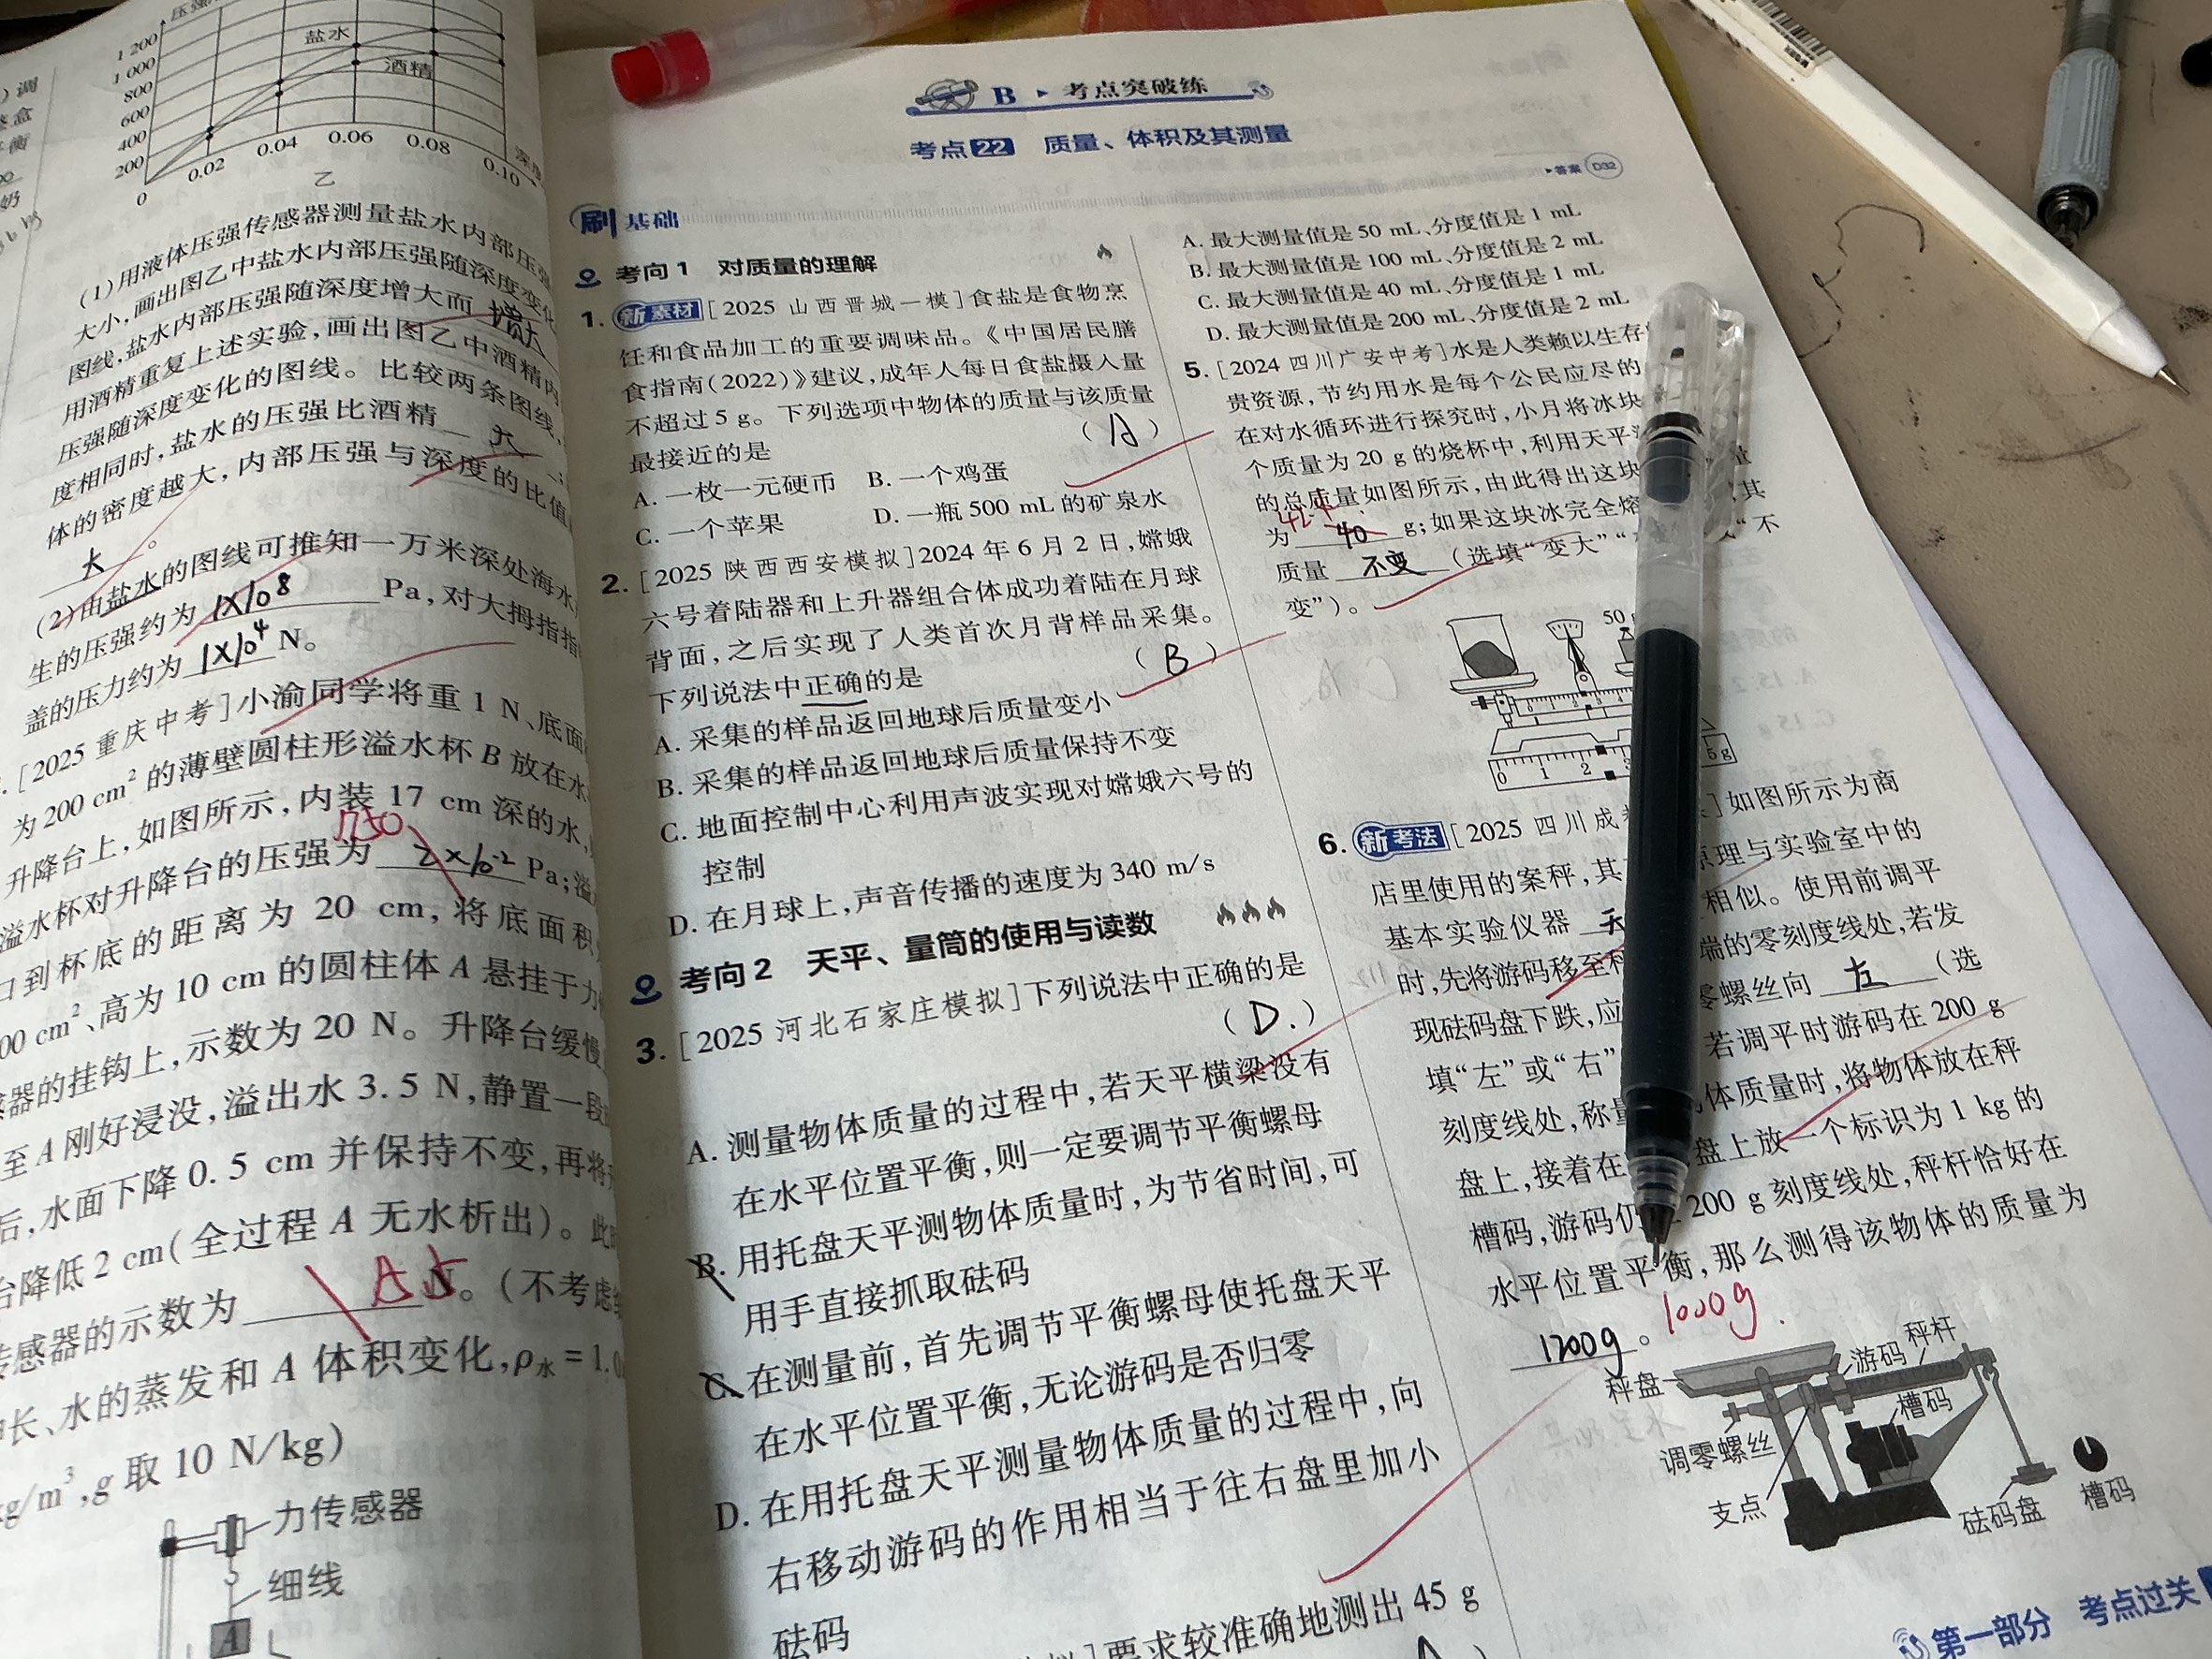 压强
1 200
1 000
800
600
400
200
0
0.02
0.04
0.06
0.08
0.10
深度
盐水
酒精
乙
(1)用液体压强传感器测量盐水内部压强
大小,画出图乙中盐水内部压强随深度变化
图线,盐水内部压强随深度增大而 增大
用酒精重复上述实验,画出图乙中酒精内
压强随深度变化的图线。比较两条图线,
度相同时,盐水的压强比酒精 大
体的密度越大,内部压强与深度的比值
大 。
(2)由盐水的图线可推知一万米深处海水
生的压强约为 1×10⁸ Pa,对大拇指指
盖的压力约为 1×10⁴ N。
[2025 重庆中考]小渝同学将重 1 N、底面
为 200 cm² 的薄壁圆柱形溢水杯 B 放在水
升降台上,如图所示,内装 17 cm 深的水,
1750
溢水杯对升降台的压强为 2×10⁻² Pa;溢
口到杯底的距离为 20 cm,将底面积
00 cm²、高为 10 cm 的圆柱体 A 悬挂于力
感器的挂钩上,示数为 20 N。升降台缓慢
至 A 刚好浸没,溢出水 3.5 N,静置一段
后,水面下降 0.5 cm 并保持不变,再将
台降低 2 cm(全过程 A 无水析出)。此
传感器的示数为 N。(不考虑
伸长、水的蒸发和 A 体积变化,ρ水 = 1.0
kg/m³,g 取 10 N/kg)
力传感器
细线
A
B 考点突破练
考点 22 质量、体积及其测量
答案 D32
刷 基础
考向 1 对质量的理解
1. 新素材 [2025 山西晋城一模]食盐是食物烹
饪和食品加工的重要调味品。《中国居民膳
食指南(2022)》建议,成年人每日食盐摄入量
不超过 5 g。下列选项中物体的质量与该质量
最接近的是 (A)
A. 一枚一元硬币 B. 一个鸡蛋
C. 一个苹果 D. 一瓶 500 mL 的矿泉水
2. [2025 陕西西安模拟]2024 年 6 月 2 日,嫦娥
六号着陆器和上升器组合体成功着陆在月球
背面,之后实现了人类首次月背样品采集。
下列说法中正确的是 (B)
A. 采集的样品返回地球后质量变小
B. 采集的样品返回地球后质量保持不变
C. 地面控制中心利用声波实现对嫦娥六号的
控制
D. 在月球上,声音传播的速度为 340 m/s
考向 2 天平、量筒的使用与读数
3. [2025 河北石家庄模拟]下列说法中正确的是
(D.)
A. 测量物体质量的过程中,若天平横梁没有
在水平位置平衡,则一定要调节平衡螺母
B. 用托盘天平测物体质量时,为节省时间,可
用手直接抓取砝码
C. 在测量前,首先调节平衡螺母使托盘天平
在水平位置平衡,无论游码是否归零
D. 在用托盘天平测量物体质量的过程中,向
右移动游码的作用相当于往右盘里加小
砝码
]要求较准确地测出 45 g
A. 最大测量值是 50 mL、分度值是 1 mL
B. 最大测量值是 100 mL、分度值是 2 mL
C. 最大测量值是 40 mL、分度值是 1 mL
D. 最大测量值是 200 mL、分度值是 2 mL
5. [2024 四川广安中考]水是人类赖以生存
贵资源,节约用水是每个公民应尽的
在对水循环进行探究时,小月将冰块
个质量为 20 g 的烧杯中,利用天平
的总质量如图所示,由此得出这块 量
为 40 g;如果这块冰完全熔 其
质量 不变 (选填“变大” “不
变”)。
50 g
0 1 2 3 5 g
6. 新考法 [2025 四川成 ]如图所示为商
店里使用的案秤,其 原理与实验室中的
基本实验仪器 天 相似。使用前调平
时,先将游码移至秤 端的零刻度线处,若发
现砝码盘下跌,应 零螺丝向 左 (选
填“左”或“右” 若调平时游码在 200 g
刻度线处,称量 体质量时,将物体放在秤
盘上,接着在 盘上放一个标识为 1 kg 的
槽码,游码仍 200 g 刻度线处,秤杆恰好在
水平位置平衡,那么测得该物体的质量为
1200g 。 1000g
秤盘
游码
秤杆
槽码
调零螺丝
支点
砝码盘
槽码
第一部分 考点过关